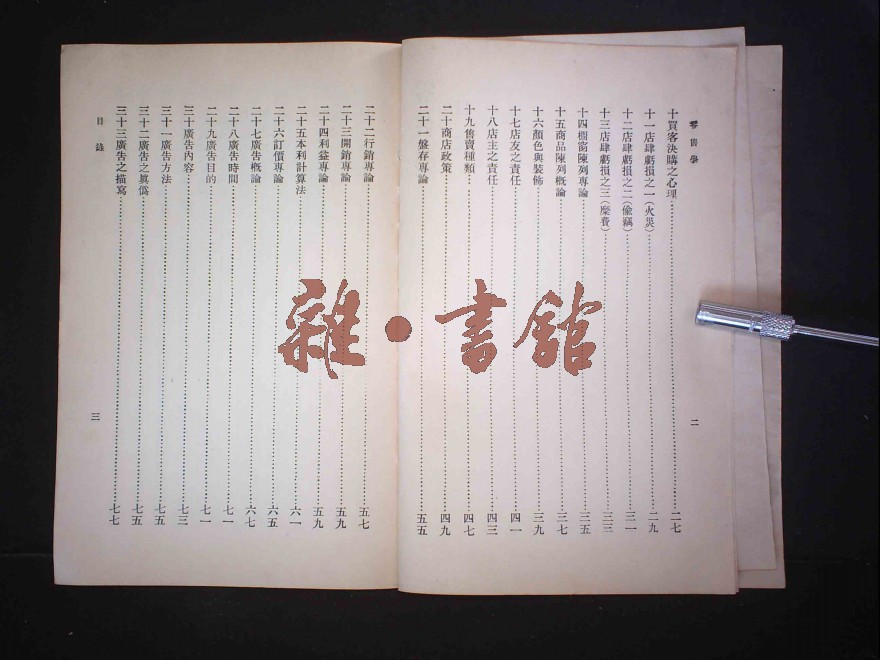 零售學
十買客決購之心理……二七
十一店肆虧損之一(火災)……二九
十二店肆虧損之二(偸竊)……三一
十三店肆虧損之三(糜費)……三三
十四櫥窗陳列專論……三五
十五商品陳列概論……三七
十六顏色與裝飾……三九
十七店友之責任……四一
十八店主之責任……四三
十九售賣種類……四七
二十商店政策……四九
二十一盤存專論……五五
二
二十二行銷專論……五七
二十三開銷專論……五九
二十四利益專論……五九
二十五本利計算法……六一
二十六訂價專論……六五
二十七廣告概論……六七
二十八廣告時間……七一
二十九廣告目的……七一
三十廣告內容……七三
三十一廣告方法……七五
三十二廣告之眞僞……七五
三十三廣告之描寫……七七
目錄
三
雜·書館